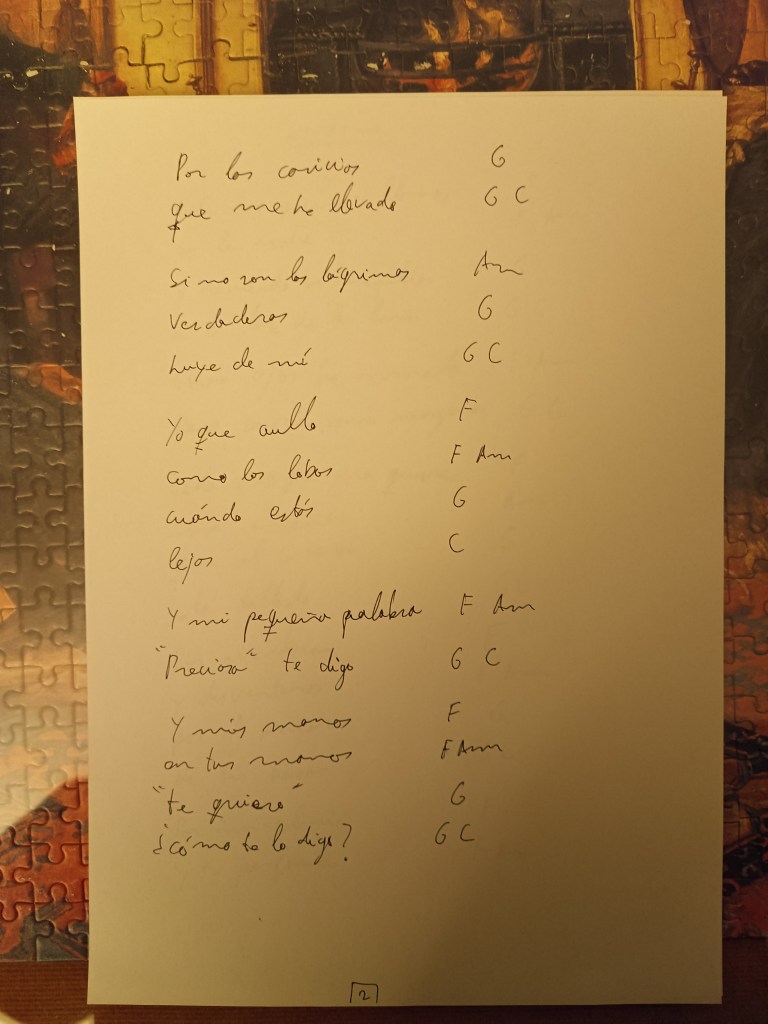 Por las caricias G
que me he llevado G C
Si no son las lágrimas Am
verdaderas G
huye de mí G C
Yo que aullo F
como los lobos F Am
cuándo estás G
lejos C
Y mi pequeña palabra F Am
"Preciosa" te digo G C
Y mis manos F
en tus manos F Am
"te quiero" G
¿cómo te lo digo? G C
2